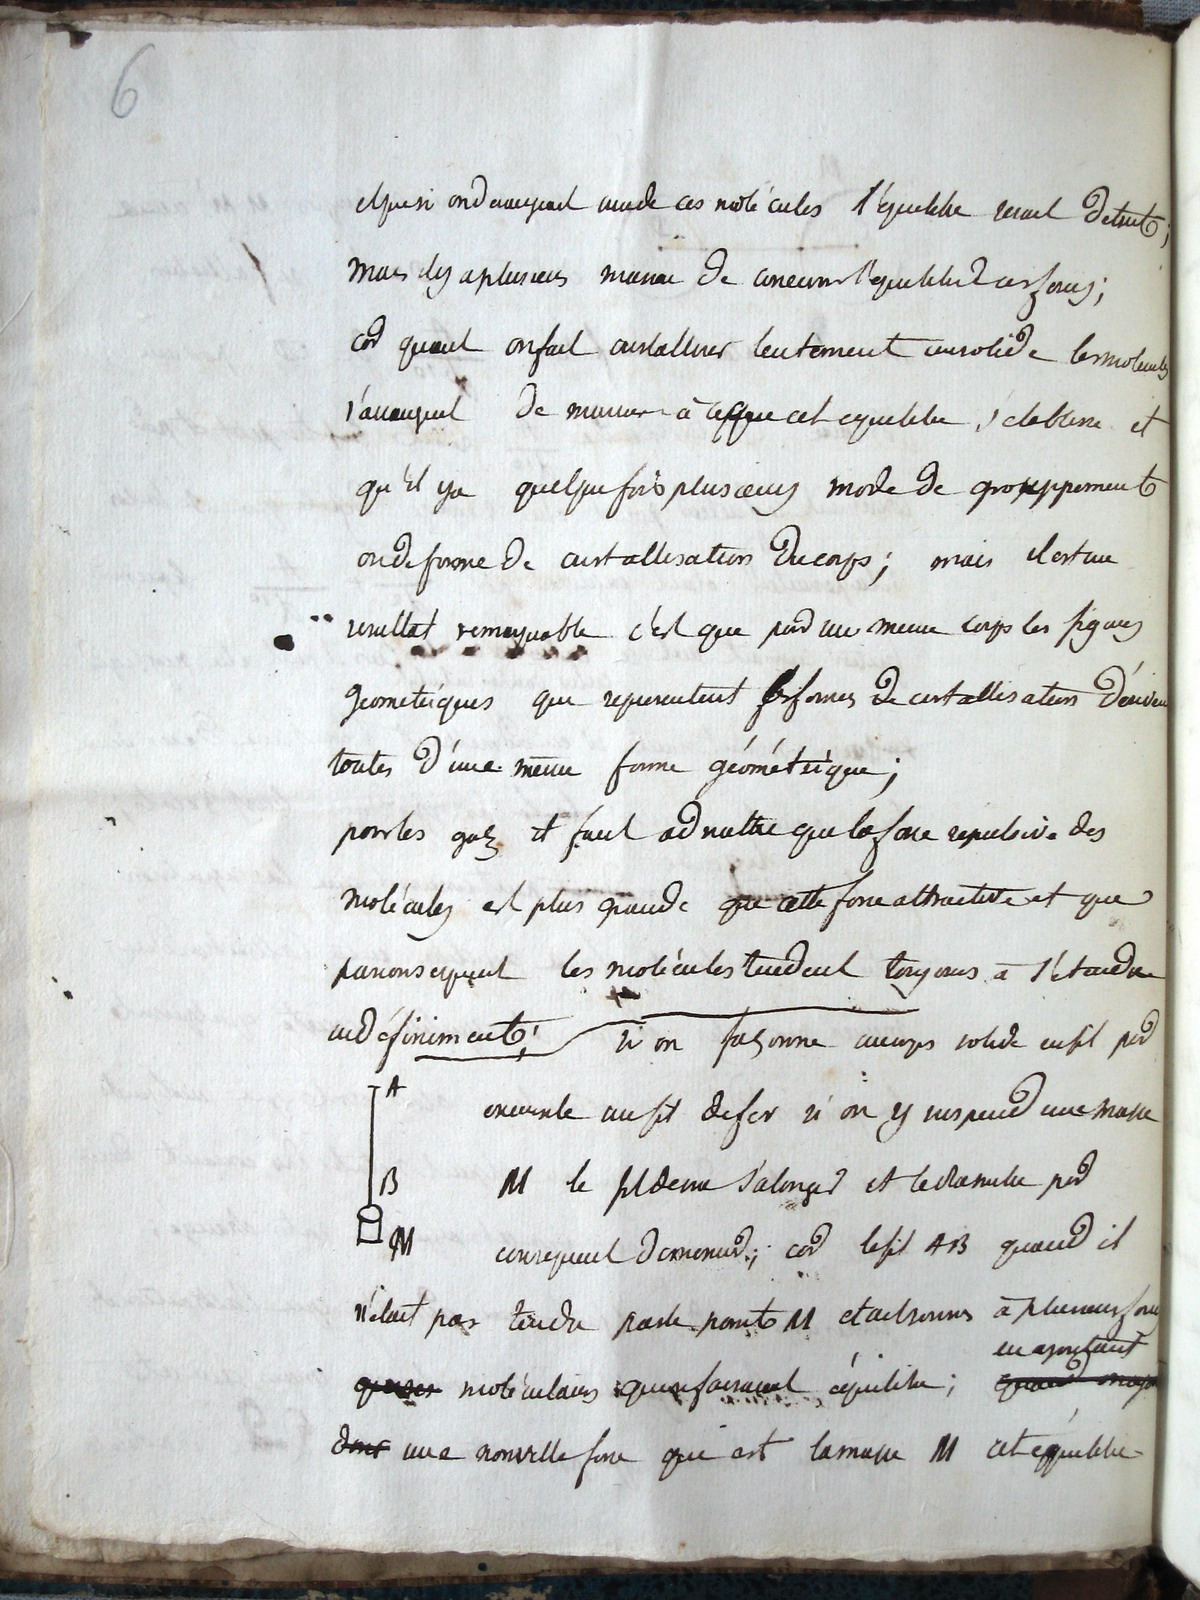 6
et que si on derangeait une de ces molécules l'équilibre serait detruit;
mais il y a plusieurs maniere de concevoir l'equilibre de ces forces;
car quand on fait cristalliser lentement un solide les molecules
s'arrangent de maniere à ce que cet equilibre s'etablisse et
qu'il y a quelque fois plusieurs mode de grouppement
ou de forme de cristallisation du corps; mais il est un
resultat remarquable c'est que pour un meme corps les figures
geometriques que representent ses formes de cristallisation dérivent
toutes d'une même forme géométrique;
pour les gaz il faut admettre que la force repulsive des
molécules est plus grande que cette force attractive et que
par consequent les molécules tendent toujours à s'étendre
indéfiniment; si on façonne un corps solide en fil par
A exemple un fil de fer si on y suspend une masse
B M le fil devra s'alonger et le diametre par
M consequent diminuer; car le fil AB quand il
n'était pas tendu par le point M etait soumis à plusieurs forces
en ajoutant
moléculaires qui se faisaient équilibre;
une nouvelle force qui est la masse M cet equilibre